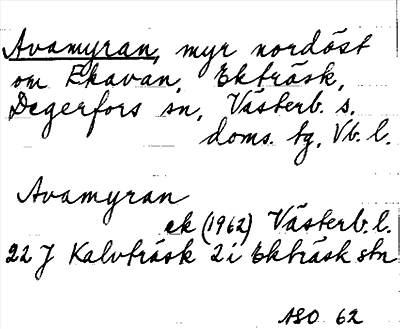 Avamyran, myr nordöst
om Ekavan, Ekträsk,
Degerfors sn, Västerb. s.
doms. tg, Vb. l.
Avamyran
ek (1962) Västerb. l.
22 J Kalvträsk 2 i Ekträsk stn
ASO 62